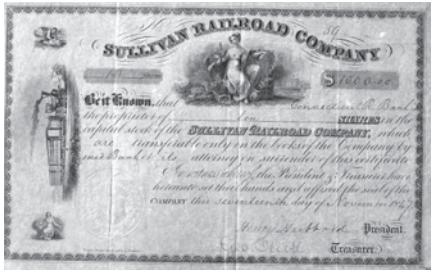 39
SULLIVAN RAILROAD COMPANY
$1000.00
Be it Known, that Connecticut R. Bank
the proprietor of ten SHARES in the
capital stock of the SULLIVAN RAILROAD COMPANY, which
are transferable only on the books of the Company by
said Bank or its attorney on surrender of this certificate
the President & Treasurer have
hereunto set their hands and affixed the seal of the
COMPANY this seventeenth day of November 1847
Henry Hubbard President.
Treasurer.